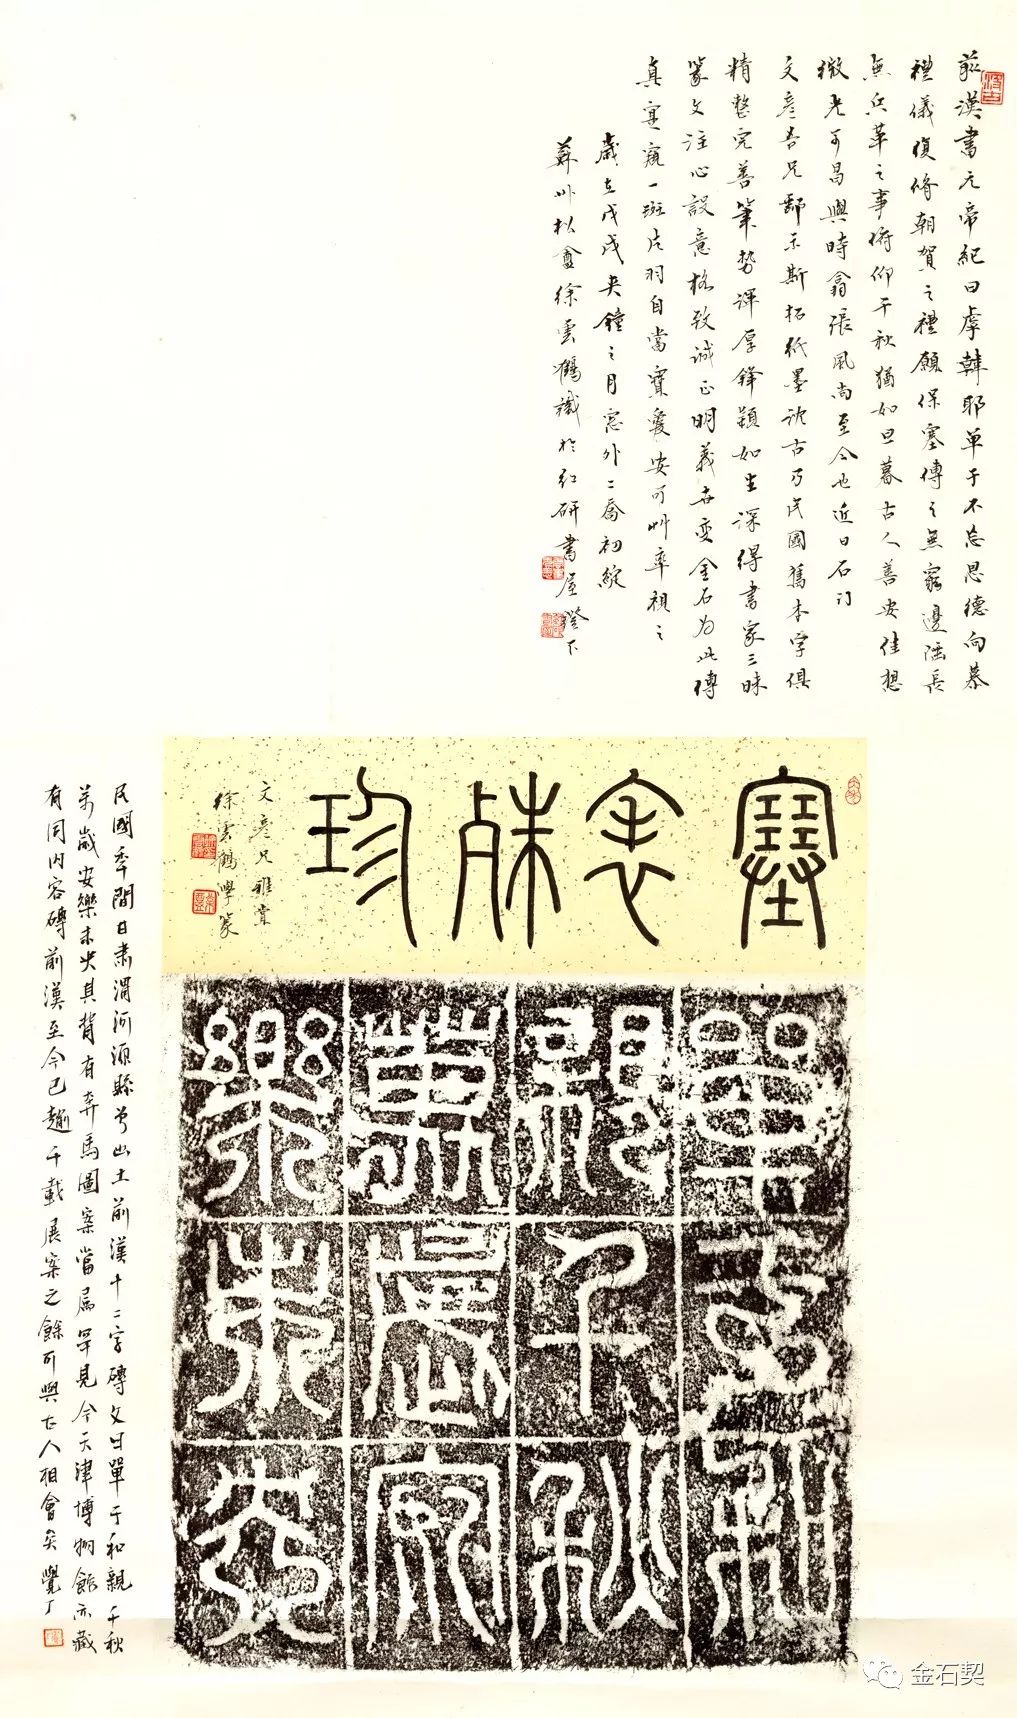 漢書元帝紀曰虖韓耶單于不忘恩德向慕
禮儀復脩朝賀之禮願保塞傳之無窮邊陲長
無兵革之事俯仰千秋猶如旦暮古人善安佳想
微光可昌與時翕張風尚至今也近日石門
文彥吾兄郵示斯拓紙墨沈古乃民國舊本字俱
精整完善筆勢渾厚鋒穎如生深得書家三昧
篆文注心設意格致誠正明義世變金石為此傳
真寔窺一斑片羽自當寶愛安可艸率視之
歲在戊戌夾鐘之月窓外二喬初綻
蘇州松盦徐雲鶴識於紅研書屋燈下
塞表殊珍
文彥兄雅賞
徐雲鶴學篆
單于和
親千秋
萬歲安
樂未央
民國季間甘肅渭河源縣曾出土前漢十二字磚文曰單于和親千秋
萬歲安樂未央其背有奔馬圖案當屬罕見今天津博物館亦藏
有同內容磚前漢至今已越千載展案之餘可與古人相會矣覺丁
金石契